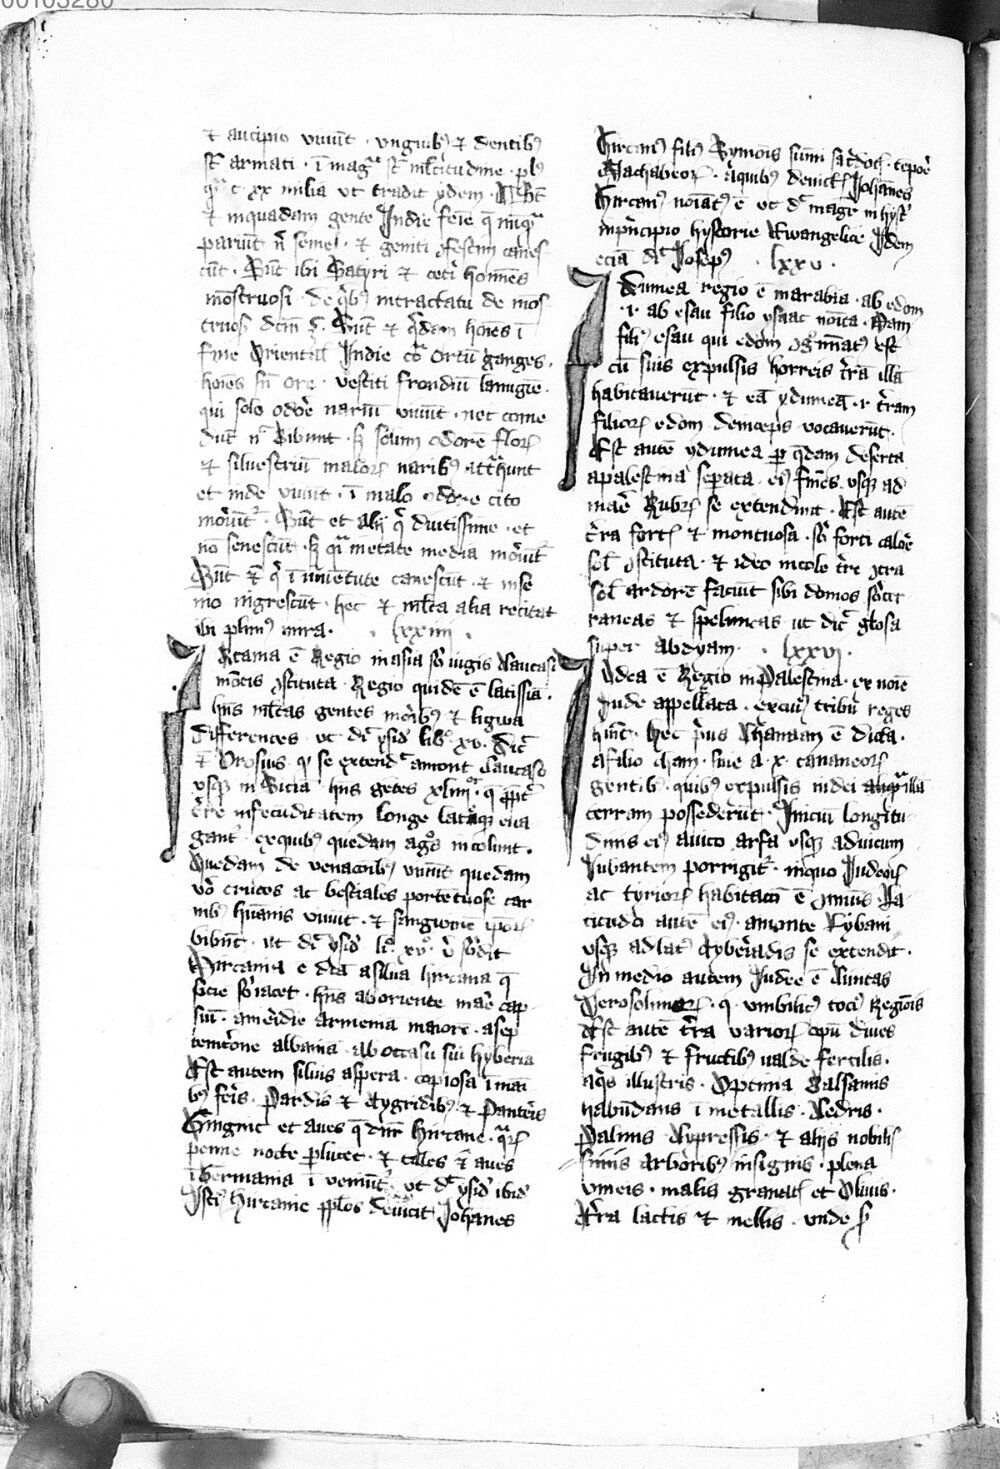 00103280
⁊ aucipio viuūt · vnguibꝰ ⁊ dentibꝰ
sūt armati · ī magͣ sūt ml̄titudine · plꝰ
vt tradit ydem · Sūt
⁊ inquadam gente Indie feīe q̄
pariūt nͦ semel · ⁊ geniti ꝯfestim canes
cūt · Sūt ibi Satyri ⁊ cetͥ homīes
mōstruosi · de qͥbꝰ intractatu de mōs
Sūt ⁊ qͥdam hoīes ī
fine Oriental̄ Indie cͣ ortū ganges ·
hoīes sn̄ ore · vestiti frondiū lanugīe ·
qui solo odoͬe nariū viuūt · nec come
dūt nͨ bibunt · sꝫ solum odorē floꝝ
⁊ siluestriū maloꝝ naribꝰ attͣhunt
et inde viuūt · ī malo odore cito
moͥūtͬ · Sūt et alij qͥ ditissime · et
nō senescūt · sꝫ qͣ īetate media moͥūtͬ
Sūt ⁊ qͥ ī iuuētute canescūt · ⁊ inse
nio nigrescūt · hec ⁊ ml̄ta alia recitat
ibi plinꝰ mira · lxxiiii ·
Ircania ē Regio inasia sͣ iugis Caucasi
mōtis ꝯstituta · Regio quidē ē latissīa ·
hn̄s ml̄tas gentes moͥibꝰ ⁊ ligwa
differentes · vt dͥt ysidͦ libͦ xv · dicͭ
⁊ Orosius · qͥ se extendͭ amont Caucaso
vsqꝫ in Sicia hn̄s gētes xliiijͦʳ · q̄ ꝓptͬ
tͬre infecūditatem longe lateqꝫ eua
gantͬ · exquibꝰ quedam agͦs incolunt ·
Quedam de venacōibꝰ viuūt quedam
vͦo truces ac bestiales portētuose car
nibꝰ hūanis viuūt · ⁊ sanguinē ipͦoꝝ
bibūt · vt dͥt ysidͦ liͦ xvͦ ·
Hircania ē dc̄a asilua hircana q̄
sicie sͧiacet · hn̄s aboriente maͬe cas
siū · ameͥdie armeniā maiorē · asep
temtͥone albaniā · aboccasu siū hyberiā
Est autem siluis aspera · copiosa īmāi
bꝰ feͥis · Pardis ⁊ tygridibꝰ ⁊ Pantheͥis
Gignit et aues q̄ dn̄r hircane · qͣꝝ
penne nocte ꝑlucēt · ⁊ tales ⁊ aues
ī Germania ī veniūtͬ · vt dͥt ysidͦ ibidͤ
Istoꝰ hircanie ppl̄os deuicit Johānes
hircanꝰ filiꝰ Symōis sūmi sacͬdocꝭ · tēpoͬe
Machabeoꝝ · aqͥbꝰ deuictꝭ Johānes
hircanꝰ noīatꝰ ē vt dͥt magͬ in hystͬ
inpͥncipio hystorie Ewangelice Idem
eciā dͥt Josepꝰ · lxxv ·
Idumea regio ē inarabia · ab edom
·i· ab esau filio ysaac noīata · Nam
filiꝰ esau qui edom est
cū suis expulsis horreis tͬrā illā
habitauerūt · ⁊ eā ydumeā ·i· tͬram
filioꝝ edom deinceps vocauerūt ·
Est autē ydumea ꝑ qͦdam deserta
apalestina separata · eiꝰ fines vsqꝫ ad
maͬe Rubꝝ se extendunt · Est autē
tͬra fortꝭ ⁊ montuosa · sͧ forti caloͬe
sol̄ ꝯstituta · ⁊ ideo incole tͬre ꝯtra
sol̄ ardorē faciūt sibi domos sͧter
raneas ⁊ speluncas ut dicͭ glosa
super abdyam · lxxvi ·
Iudea ē Regio in Palestina · ex noīe
iude appellata · excuiꝰ tribu reges
hūit · hec pͥus Chanaan ē dicta ·
afilio cham · siue a ·x· cananeoꝝ
gentibꝰ · quibꝰ expulsis iudei illā
terram possederūt · Iniciū longitu
dinis eiꝰ auico arfa vsqꝫ aduicum
Iubantem porrigitͬ · inquo Iudeoꝝ
ac tyrioꝝ habitacͦ ē ꝯmuīs · La
titudo autē eiꝰ · amonte Lybani
vsqꝫ adlacꝰ tyberiadis se extendit ·
In medio autem Iudee ē Ciuitas
Ierosolimaꝝ · qͥ · vmbilicꝰ tociꝰ Regiōis
Est autē tͬra varioꝝ opū diues
frugibꝰ ⁊ fructibꝰ valde fertilis ·
aqͥs illustris · Optima Balsamis
habūdans ī metallis · Cedris ·
Palmis Cypressis · ⁊ alijs nobilis
simis arboribꝰ insignis · plena
vineis · malis granatꝭ et Oliuis ·
tͬra lactis ⁊ mellis · vnde